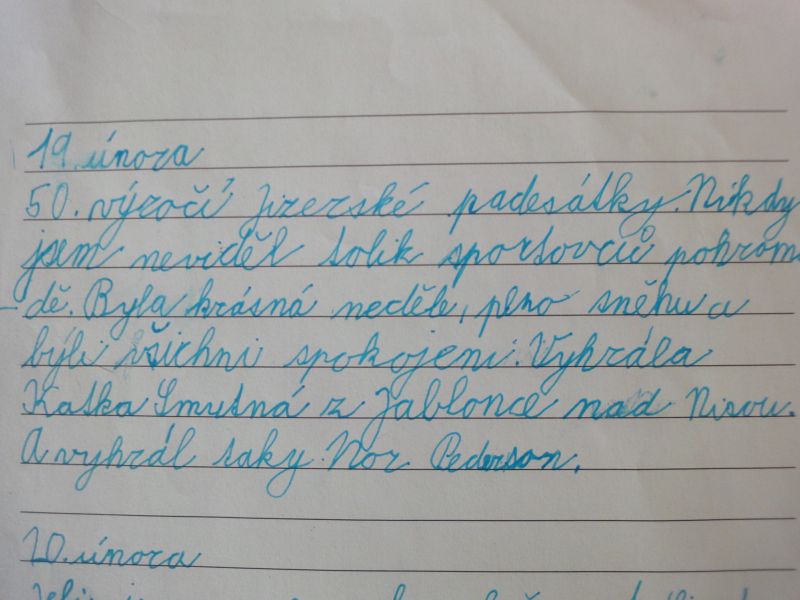 19. února
50. výročí Jizerské padesátky. Nikdy
jsem neviděl tolik sportovců pohrom
- dě. Byla krásná neděle, plno sněhu a
byli všichni spokojeni. Vyhrála
Katka Smutná z Jablonce nad Nisou.
A vyhrál taky Nor Pederson.
20. února